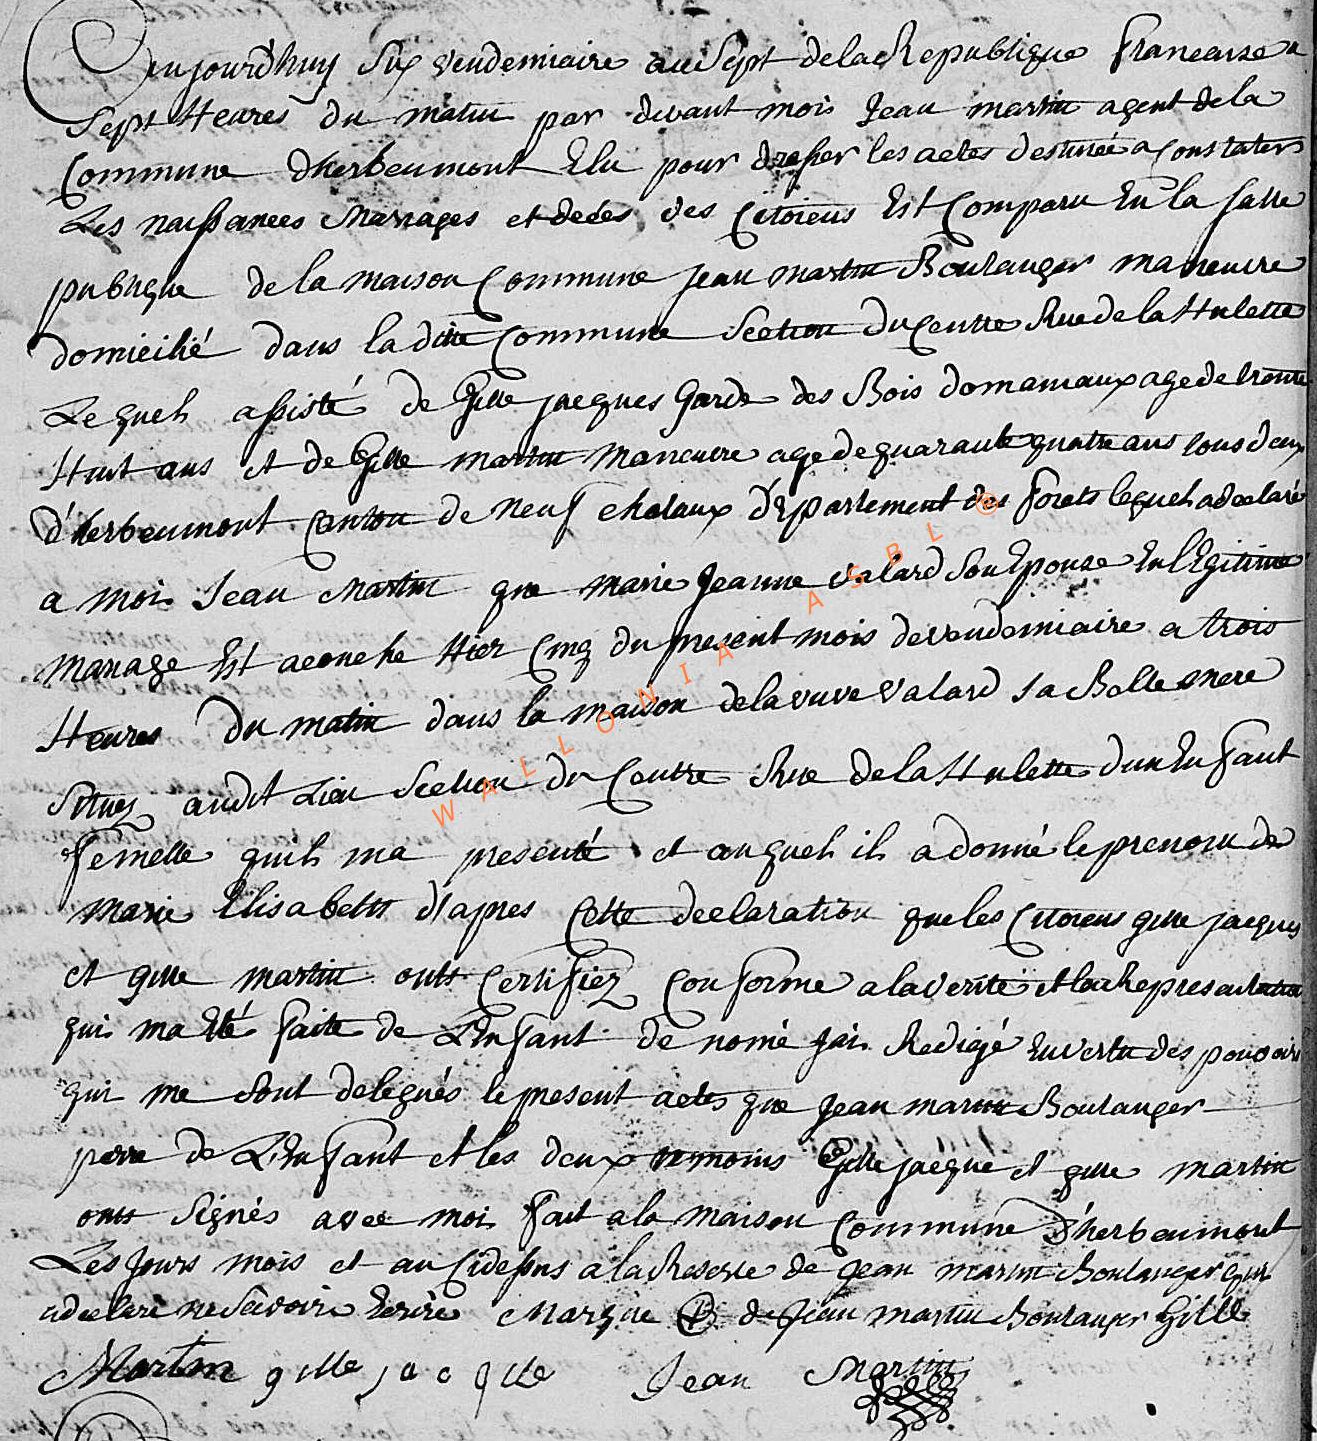 aujourd'huy Six vendemiaire an Sept de la Republique francaise a
Sept Heures du matin par devant moi Jean martin agent de la
Commune dherbeumont Elu pour dresser les actes destinée a Constater
Les naissances Mariages et deées des Citoiens Est Comparu En la salle
publique de la maison Commune Jean martin Boulanger maneuvre
domicilié dans la dite Commune Section du Centre Rue de la Hulette
Lequel assisté de Gille jacques Garde des Bois domaniaux age de trente
Huit ans et de Gille martin maneuvre age de quarante quatre ans tous deux
d'herbeumont Canton de neuf chataux Département des forets lequel a declaré
a moi Jean Martin que marie Jeanne valard Son Epouse En lEgitime
mariage Est acouche Hier Cinq du present mois de vendemiaire a trois
Heures du matin dans la maison de la vuve valard sa Belle mere
Situez audit Lieu Section du Centre Rue de la Hulette dun Enfant
femelle quil ma presenté et au quel il a donné le prenom de
marie Elisabeth d'apres Cette declaration que les Citoiens gille jacques
et gille martin onts Certifiez Conforme a la verité et la Representation
qui ma Eté faite de L'Enfant de nomé jai Redigé En vertu des pouvoirs
qui me Sont delegués le present actes que Jean martin Boulanger
pere de L'Enfant et les deux temoins Gille jacque et gille martin
onts Signés avec moi fait a la maison Commune d'herbeumont
Les Jours mois et an Cidessus a la Reserve de Jean martin Boulanger qui
a declaré ne Savoire Ecrire Marque de Jean martin Boulanger Gille
Martin gille jacque Jean Martin
WALLONIA ASBL ®